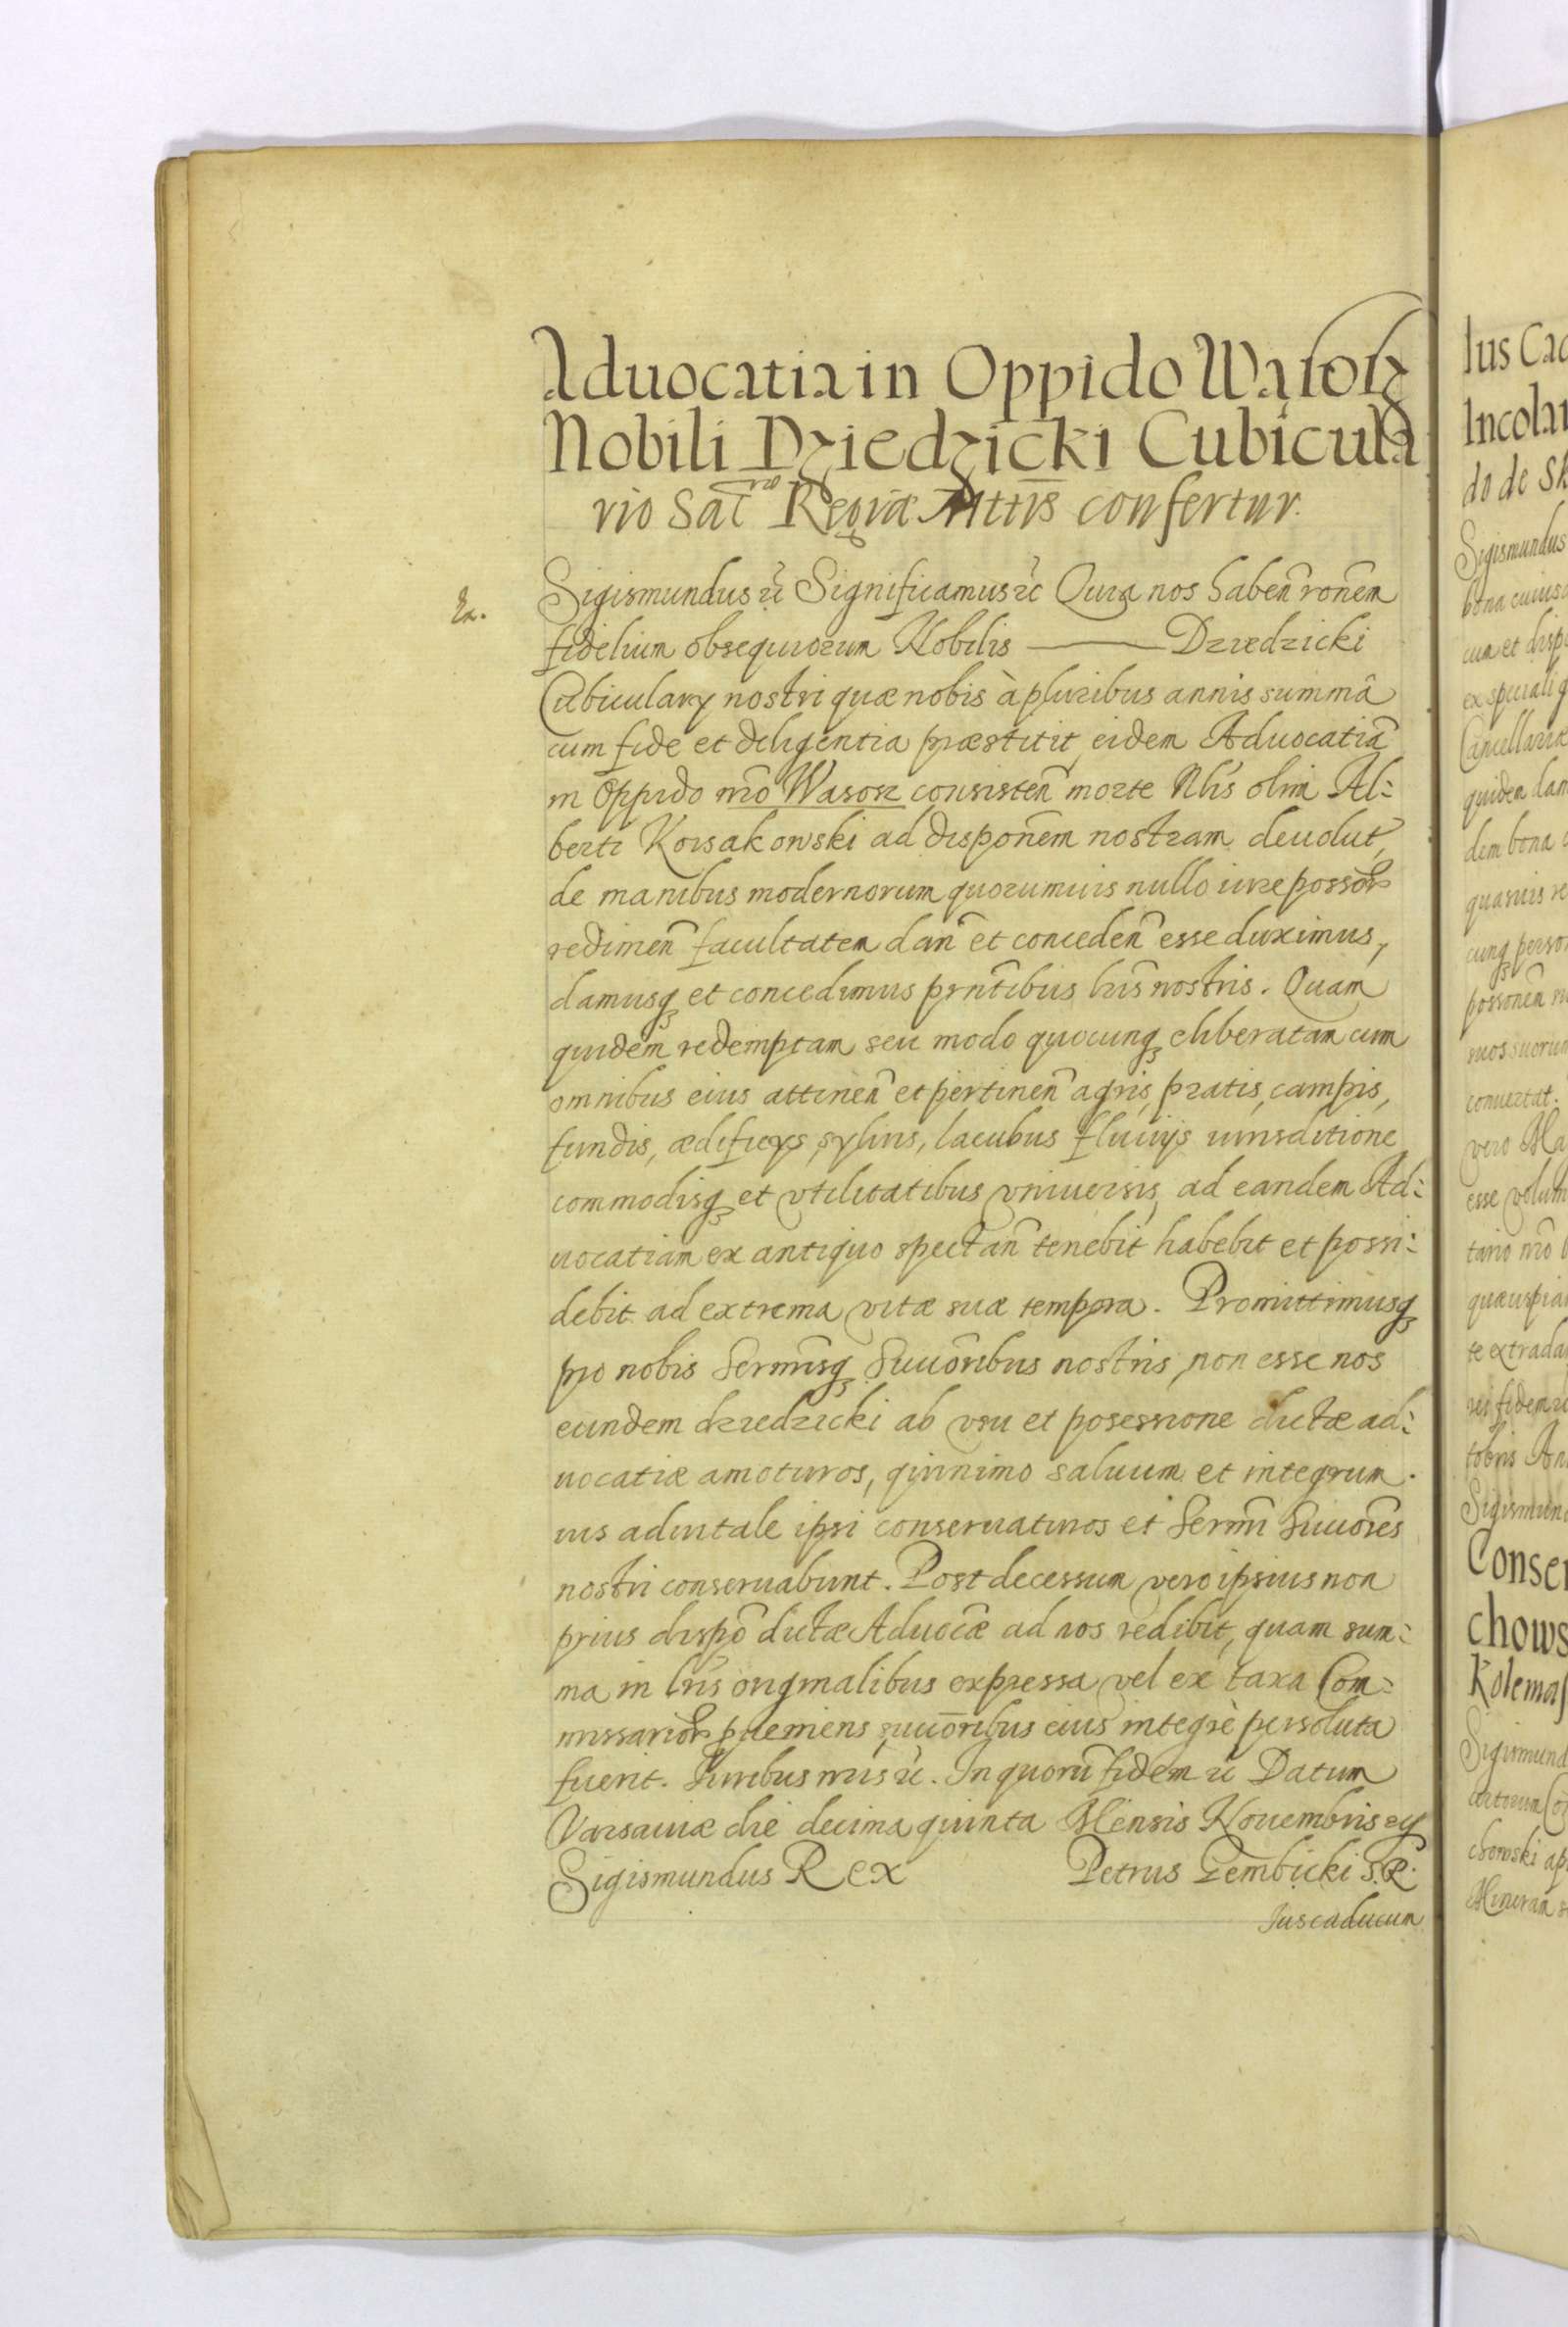 Aduocatia in Oppido Wąsosz
Nobili Dziedzicki Cubicula
rio Sac Regiæ Mttis confertur.
Sigismundus etc̃ Significamus etc̃ Quia nos haben̄ ron̄em
fidelium obsequiorum Nobilis ——— Dziedzicki
Cubiculary nostri quæ nobis à pluribus annis summâ
cum fide et diligentia præstitit, eidem Aduocatiā
in Oppido nr̄o Wasosz consisten̄ morte Nlis olim Al:
berti Korsakowski ad dispon̄em nostram deuolut,
de manibus modernorum quorumuis nullo iure possor̄
redimen̄ facultatem dan̄ et conceden̄ esse duximus,
damusq et concedimus pr̄ntibus lr̄is nostris. Quam
quidem redemptam seu modo quocunq eliberatam cum
omnibus eius attinen̄ et pertinen̄ agris, pratis, campis,
fundis, ædificys, syluis, lacubus fluuijs iurisditione
commodisq et vtilitatibus vniuersis, ad eandem Ad:
uocatiam ex antiquo spectan̄ tenebit habebit et possi:
debit ad extrema vitæ suæ tempora. Promittimusq
pro nobis Sermis̄q Suuōribus nostris, non esse nos
eundem dziedzicki ab vsu et posessione dictæ ad:
uocatiæ amoturos, quinimo saluum et integrum.
ius aduitale ipsi conseruaturos et Serm̄i Suuōres
nostri conseruabunt. Post decessum vero ipsius non
prius dispō dictæ Aduoc̄æ ad nos redibit, quam sum:
ma in lr̄is originalibus expressa vel ex taxa Com:
missarior̄ proueniens suuōribus eius integrè persoluta
fuerit. Iuribus nr̄is etc̃. In quorū fidem etc̃ Datum
Varsauiæ die decima quinta Mensis Nouembris ey
Sigismundus Rex Petrus Gembicki S.R.
Ius caducum